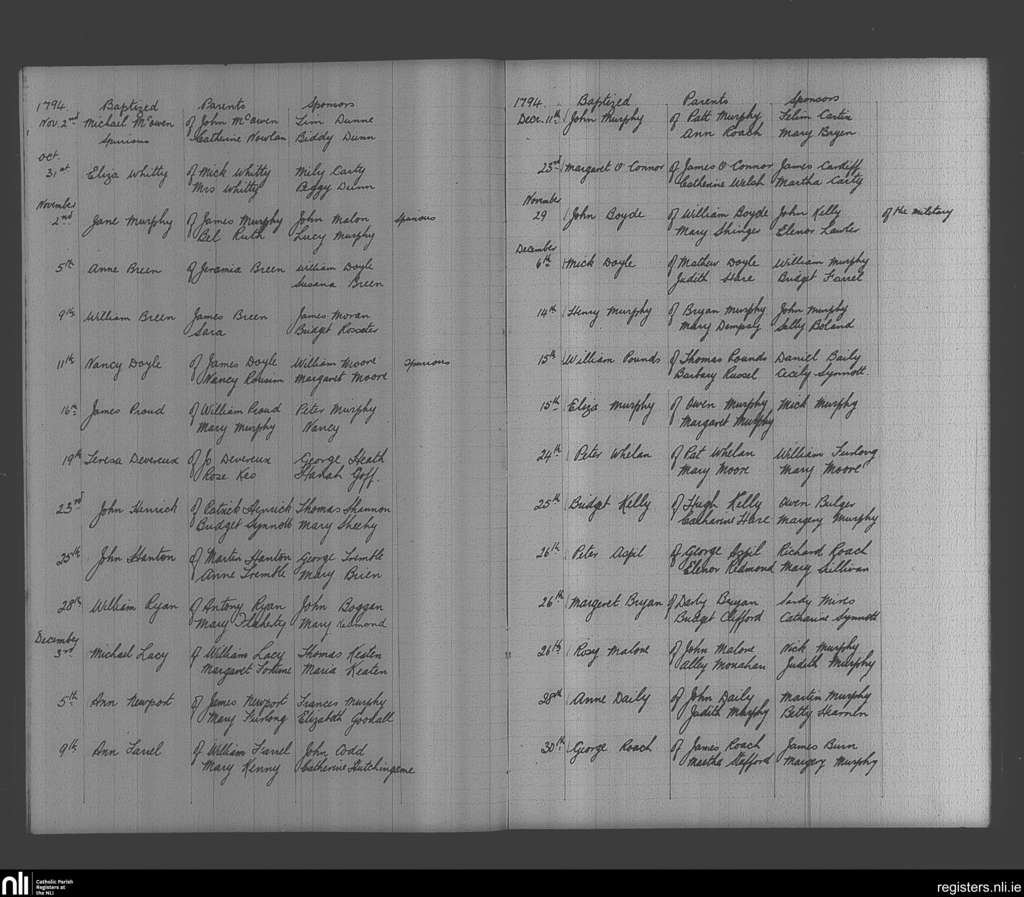 1794 Baptized Parents Sponsors
Nov. 2nd Michael McOwen of John McOwen Tim Dunne
Spurious Catherine Nowlan Biddy Dunn
Oct.
31st Eliza Whitty of Mick Whitty Mily Carty
Mrs Whitty Biggy Dunn
November
2nd Jane Murphy of James Murphy John Malon Spurious
Bel Ruth Lucy Murphy
5th Anne Breen of Jeramia Breen William Doyle
Susana Breen
9th William Breen James Breen James Moran
Sara Budget Roseter
11th Nancy Doyle of James Doyle William Moore Spurious
Nancy Margaret Moore
16th James Proud of William Proud Peter Murphy
Mary Murphy Nancy
19th Teresa Devereux of Jo Devereux George Heath
Rose Keo Hanah Goff.
23rd John Henrick of Patrick Henrick Thomas Shannon
Budget Synnott Mary Sheehy
25th John Stanton of Martin Stanton George Tremble
Anne Tremble Mary Brien
28th William Ryan of Antony Ryan John Boggan
Mary Flahetty Mary Redmond
December
3rd Michael Lacy of William Lacy Thomas Keaten
Margaret Maria Keaten
5th Ann Newport of James Newport Frances Murphy
Mary Furlong Elizabeth Goodall
9th Ann Farrel of William Farrel John Codd
Mary Kenny Catherine
1794 Baptized Parents Sponsors
Decr. 11th John Murphy of Patt Murphy Felim Cartin
Ann Roach Mary Bryen
23rd Margaret O'Connor of James O'Connor James Cardiff
Catherine Welsh Martha Carty
November
29 John Boyde of William Boyde John Kelly of the military
Mary Elenor Lawler
December
6th Mick Doyle of Mathew Doyle William Murphy
Judith Hare Budget Farrel
14th Henry Murphy of Bryan Murphy John Murphy
Mary Dempsly Sally Boland
15th William Pounds of Thomas Pounds Daniel Baily
Barbary Russel Cecily Synnott.
15th Eliza Murphy of Owen Murphy Mick Murphy
Margaret Murphy
24th Peter Whelan of Pat Whelan William Furlong
Mary Moore Mary Moore
25th Budget Kelly of Hugh Kelly Owen Bulger
Catharine Hare Margery Murphy
26th Peter Aspil of George Aspil Richard Roach
Elenor Redmond Mary Sullivan
26th Margaret Bryan of Darby Bryan
Budget Clifford Catharine Synnott
26th Rosy Malone of John Malone Nick Murphy
Alley Monahan Judith Murphy
28th Anne Daily of John Daily Martin Murphy
Judith Murphy Betty
30th George Roach of James Roach James Burn
Martha Stafford Margery Murphy
nli Catholic Parish
Registers at
the NLI
registers.nli.ie